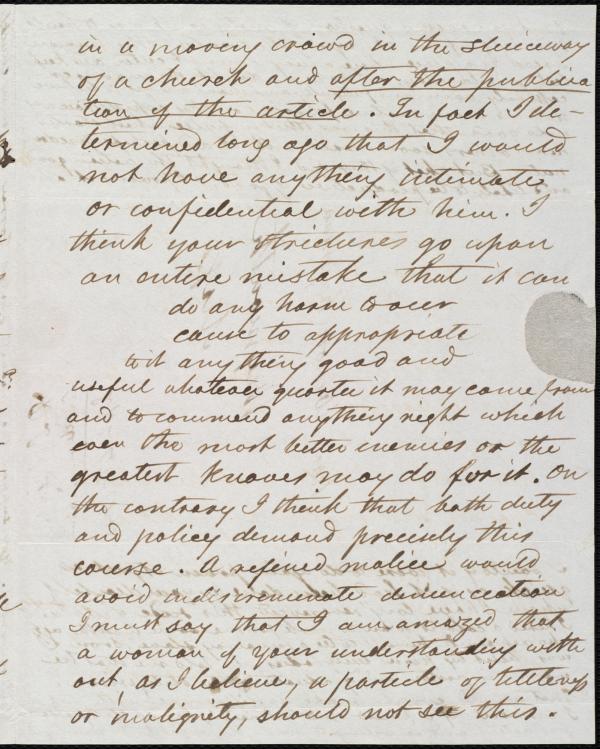 in a moving crowd in the sluiceway
of a church and after the publica
tion of the article. In fact I de-
termined long ago that I would
not have anything intimate
or confidential with him. I
think your strictures go upon
an entire mistake that it can
do any harm to our
cause to appropriate
to it anything good and
useful whatever quarter it may come from
and to commend anything right which
even the most bitter enemies or the
greatest knaves may do for it. On
the contrary I think that both duty
and policy demand precisely this
course. A refined malice would
avoid indiscriminate denunciation
I must say that I am amazed that
a woman of your understanding with
out, as I believe, a particle of littleness
or malignity, should not see this.